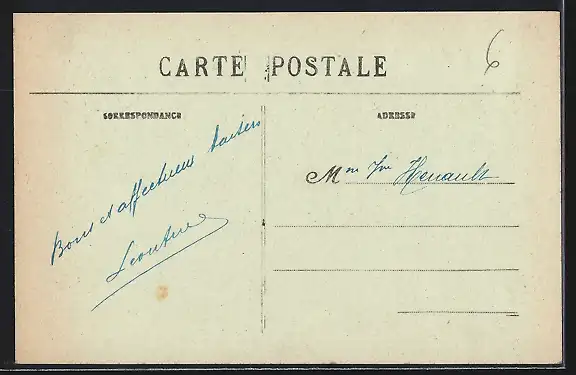 CARTE POSTALE
6
CORRESPONDANCE
ADRESSE
Bons et affectueux baisers
Léontine
M Henault